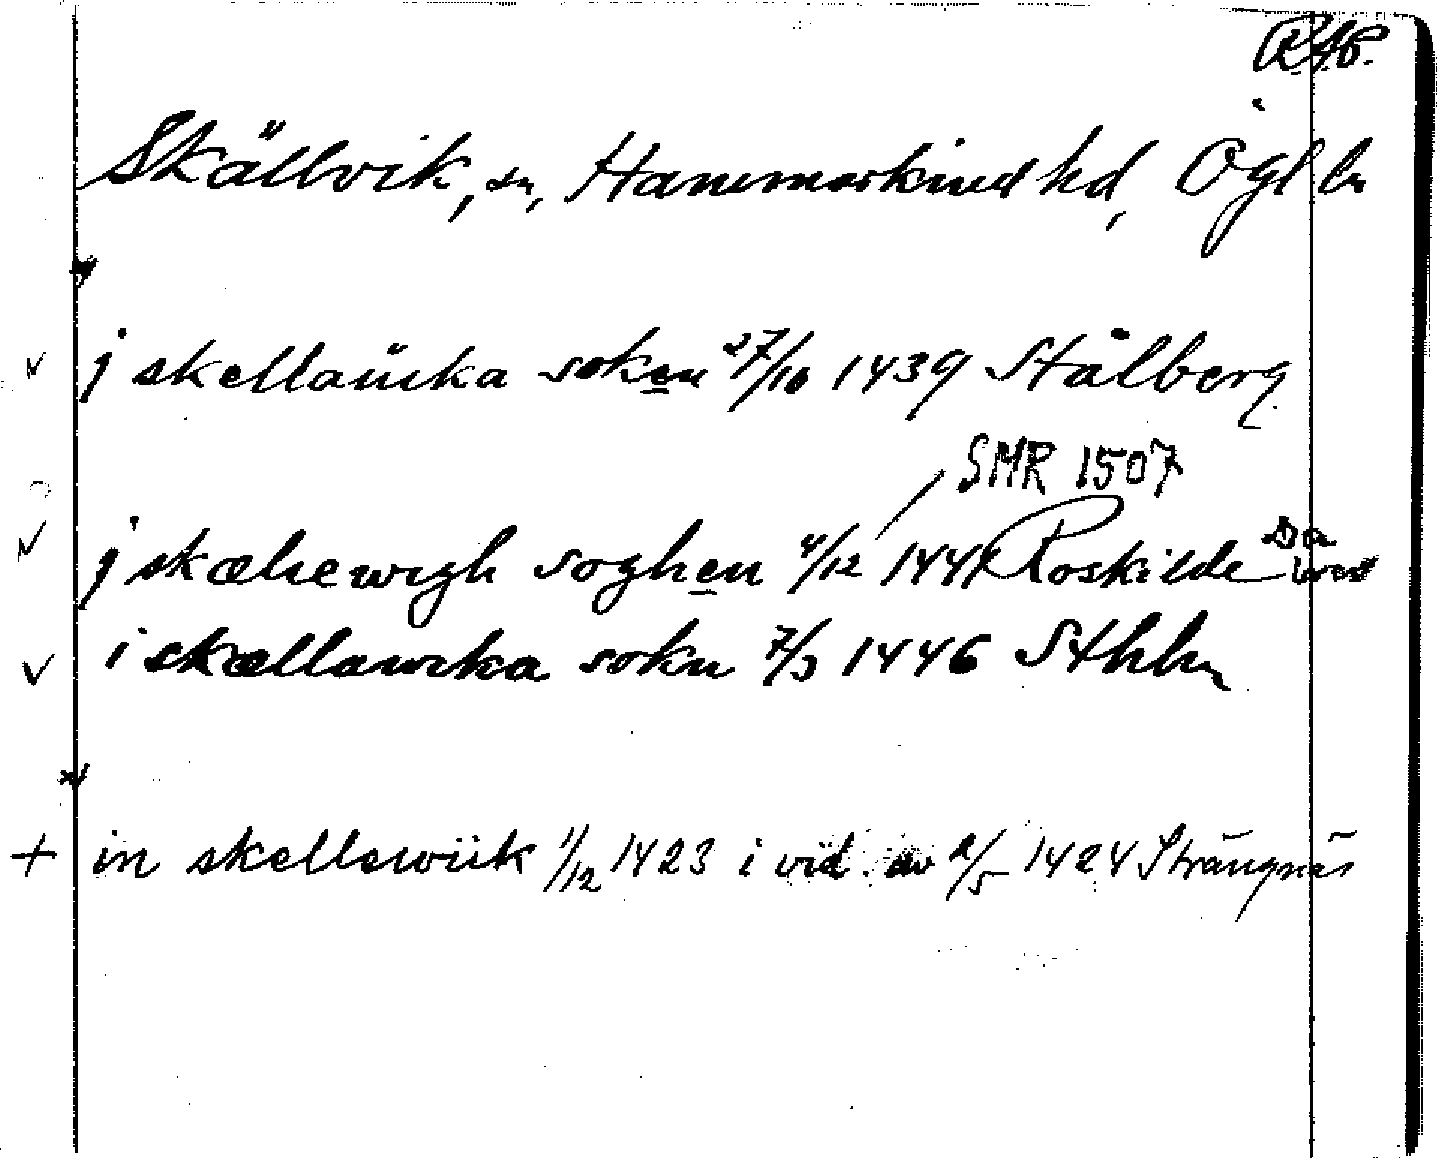 RAp.
Skällvik, sn, Hammarkind hd, Ögl ln
j skellauika soken 27/10 1439 Stålberg
SMR 1507
j skælrewigh soghen 4/12 1441 Roskilde Da
i skællawika sokn 7/3 1446 Sthlm
in skellewiik 1/12 1423 i vid. av 2/5 1424 Strängnäs